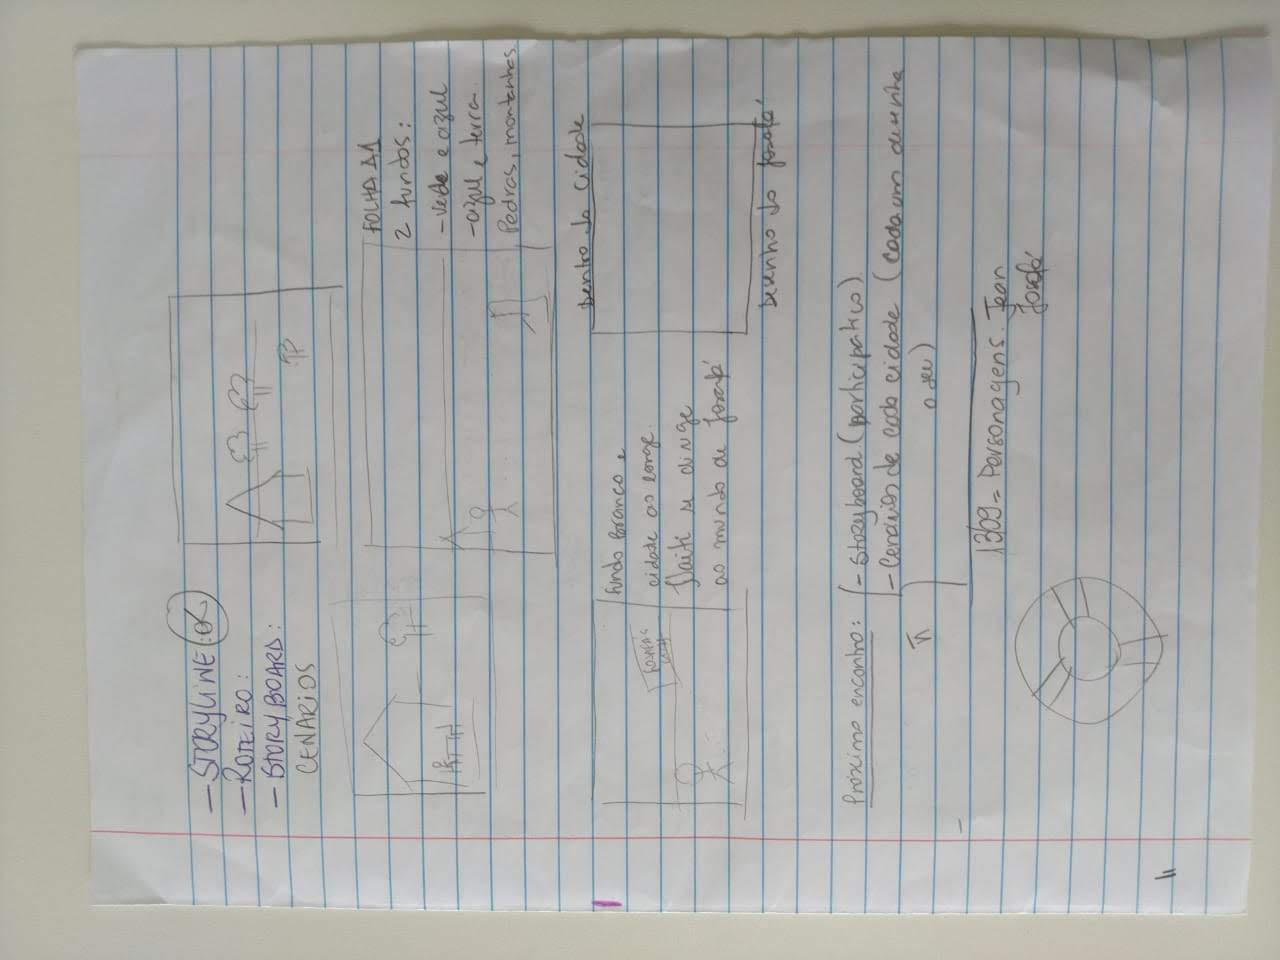 - STORYLINE: OK
- ROTEIRO:
- STORYBOARD:
CENÁRIOS
FOLHA A1
2 fundos:
- verde e azul
- azul e terra.
Pedras, montanhas.
fundo branco e
cidade ao longe.
se dirige
ao mundo de Josafá
Dentro da Cidade
Desenho do Josafá
Próximo encontro:
- Storyboard (participativo)
- Cenários de cada cidade (cada um desenha
o seu)
1309 = Personagens. Jean
Josafá